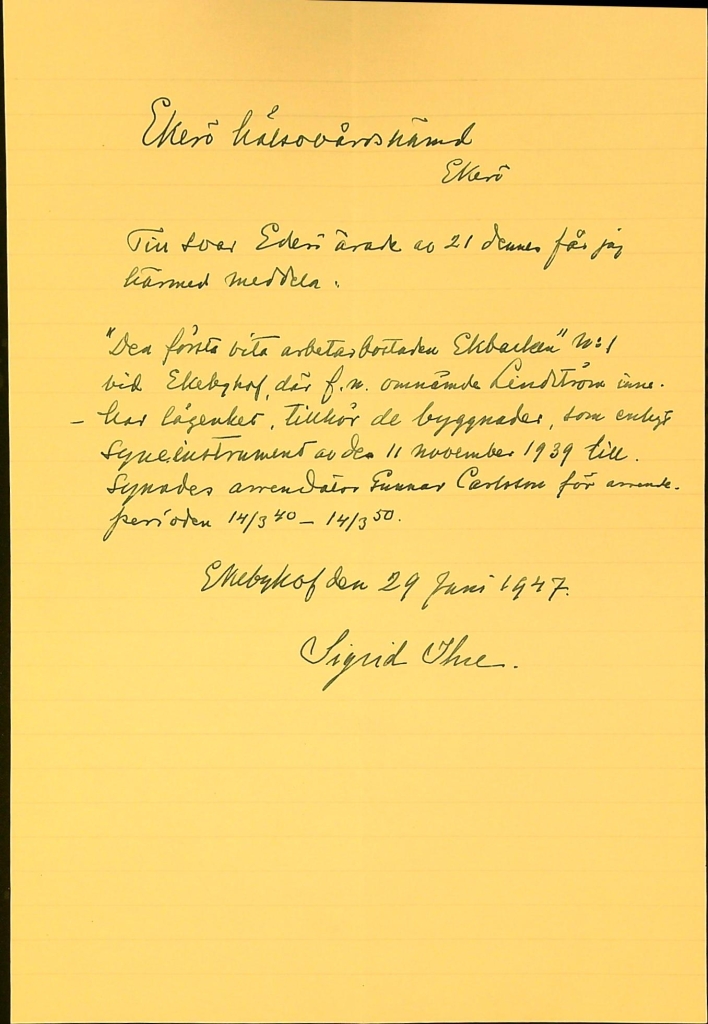 Ekerö hälsovårdsnämd
Ekerö
Till svar Eders ärade av 21 dennes får jag
härmed meddela:
"Den första vita arbetarbostaden Ekbacken" N:1
vid Ekebyhof, där f.n. omnämde Lindström inne-
- har lägenhet, tillhör de byggnader, som enligt
syneinstrument av den 11 november 1939 till-
synades arrendator Gunnar Carlsson för arrende-
perioden 14/3 40 – 14/3 50.
Ekebyhof den 29 Juni 1947.
Sigrid Ihre.